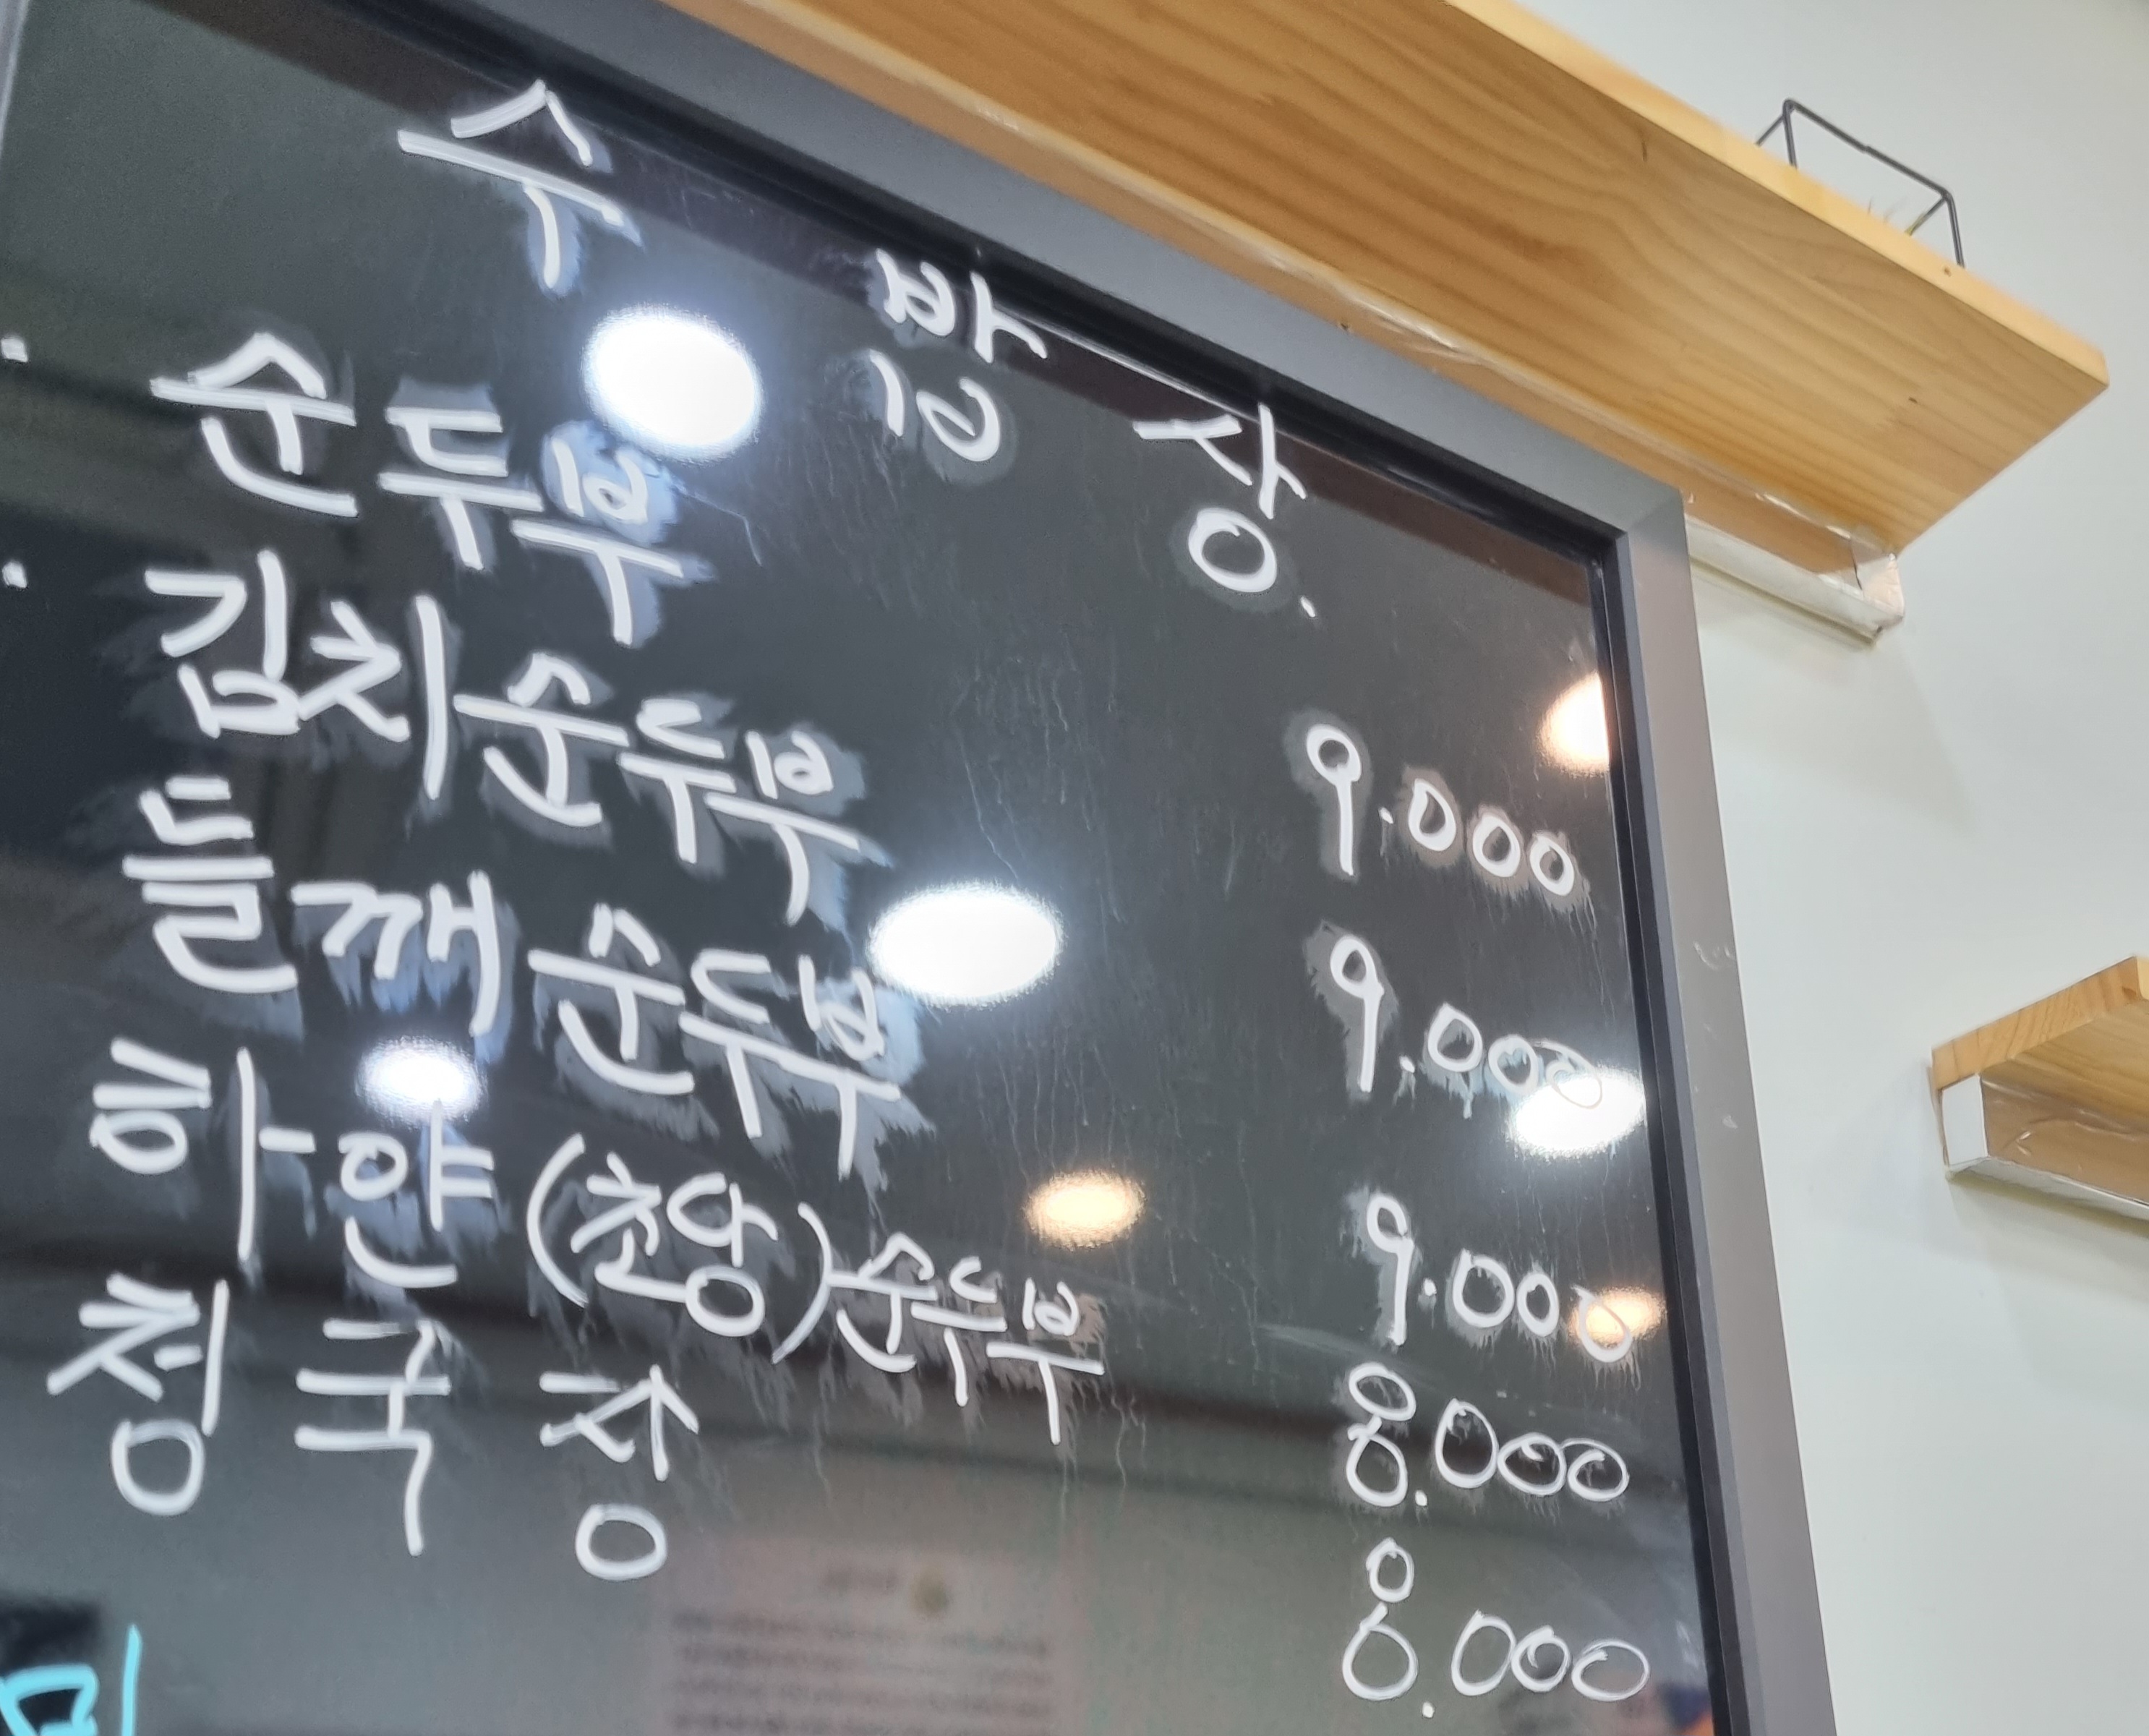 수 밥 상.
순두부 9.000
김치순두부 9.000
들깨순두부 9.000
하얀(초당)순두부 8.000
청국장 8.000